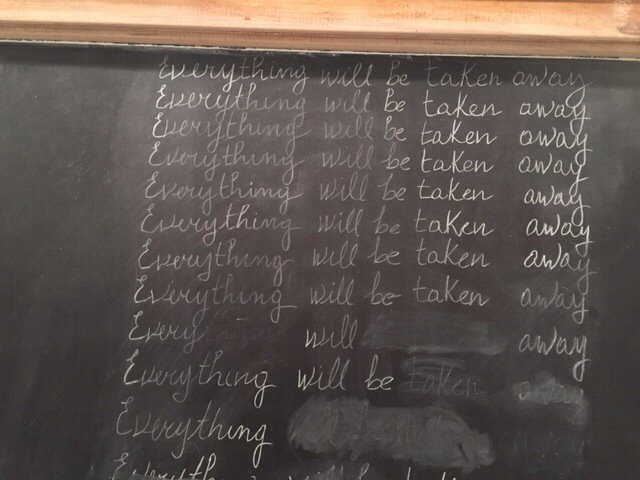 Everything will be taken away
Everything will be taken away
Everything will be taken away
Everything will be taken away
Everything will be taken away
Everything will be taken away
Everything will be taken away
Everything will be taken away
Every will away
Everything will be taken away
Everything